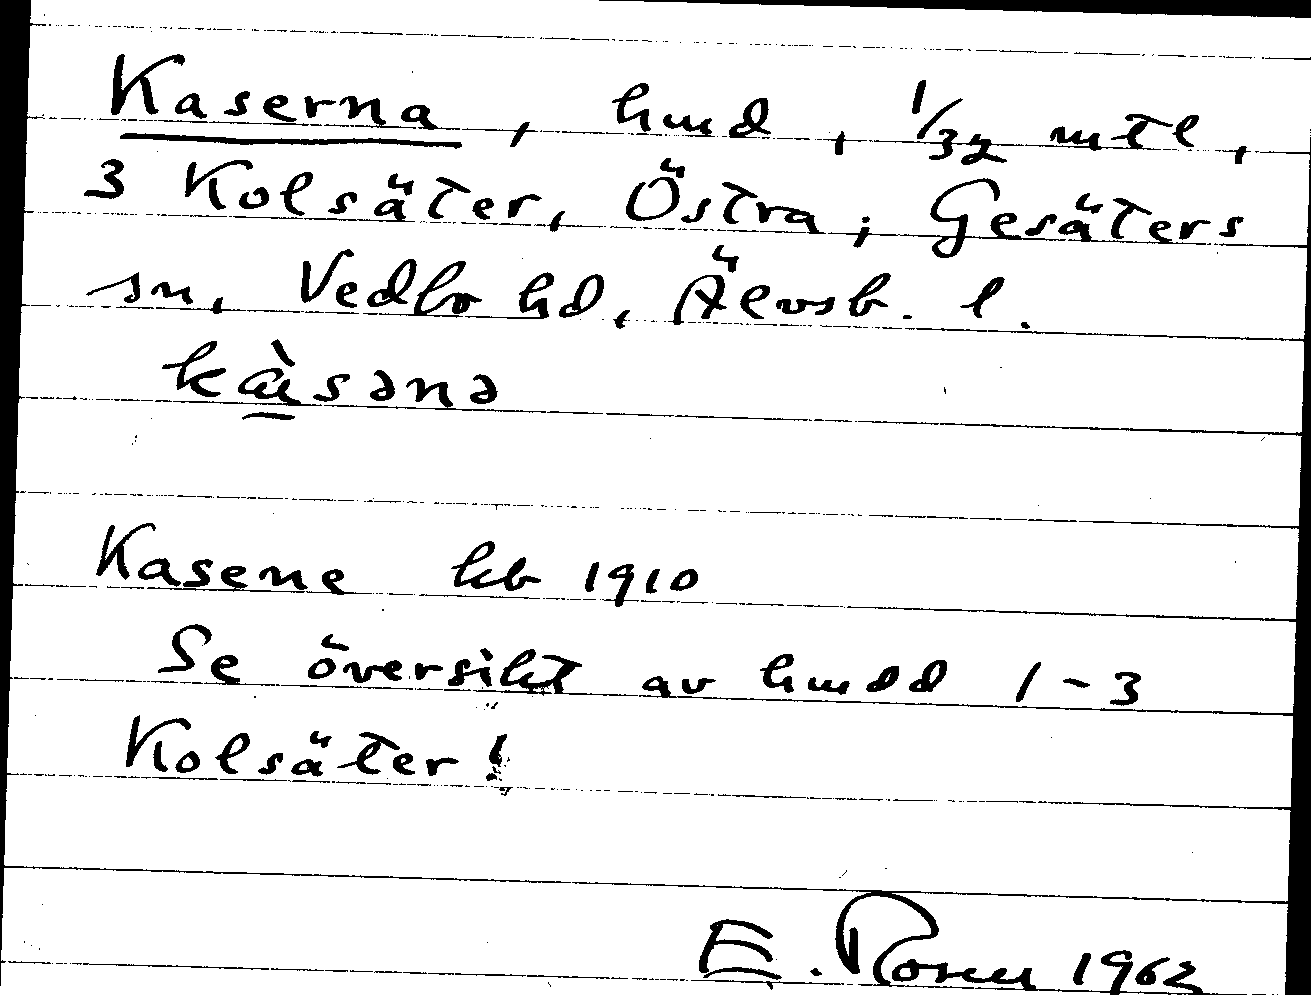 Kaserna, hmd, 1/32 mtl,
3 Kolsäter, Östra; Gesäters
sn, Vedbo hd, Älvsb. l.
kàsənə
Kasene kb 1910
Se översikt av hmdd 1-3
Kolsäter!
E. Rosen 1962